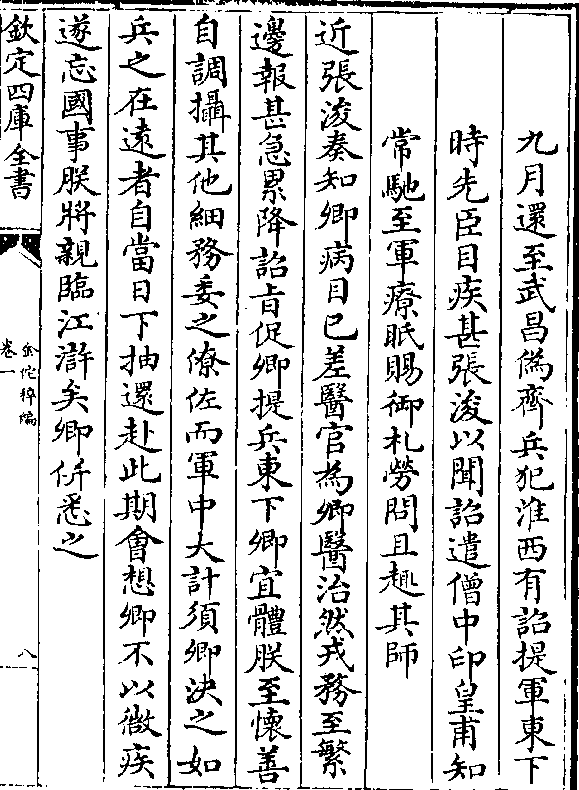 九月還至武昌偽齊兵犯淮西有詔提軍東下
時先臣目疾甚張浚以聞詔遣僧中印皇甫知
常馳至軍療眡賜御札勞問且趣其師
近張浚奏知卿病目已差醫官為卿醫治然戎務至繁
邊報甚急累降詔㫖促卿提兵東下卿宜體朕至懷善
自調攝其他細務委之僚佐而軍中大計須卿決之如
兵之在遠者自當日下抽還赴此期會想卿不以微疾
遂忘國事朕將親臨江滸矣卿併悉之
欽定四庫全書
金佗稡編
卷一
八